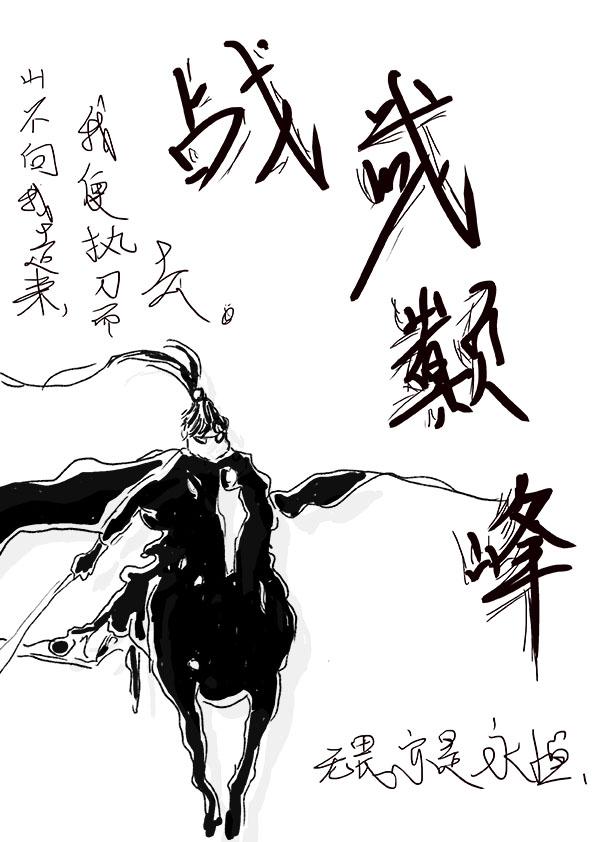 战武颠峰
山不向我走来，
我便执刀而
去。
无畏、亦是永恒、